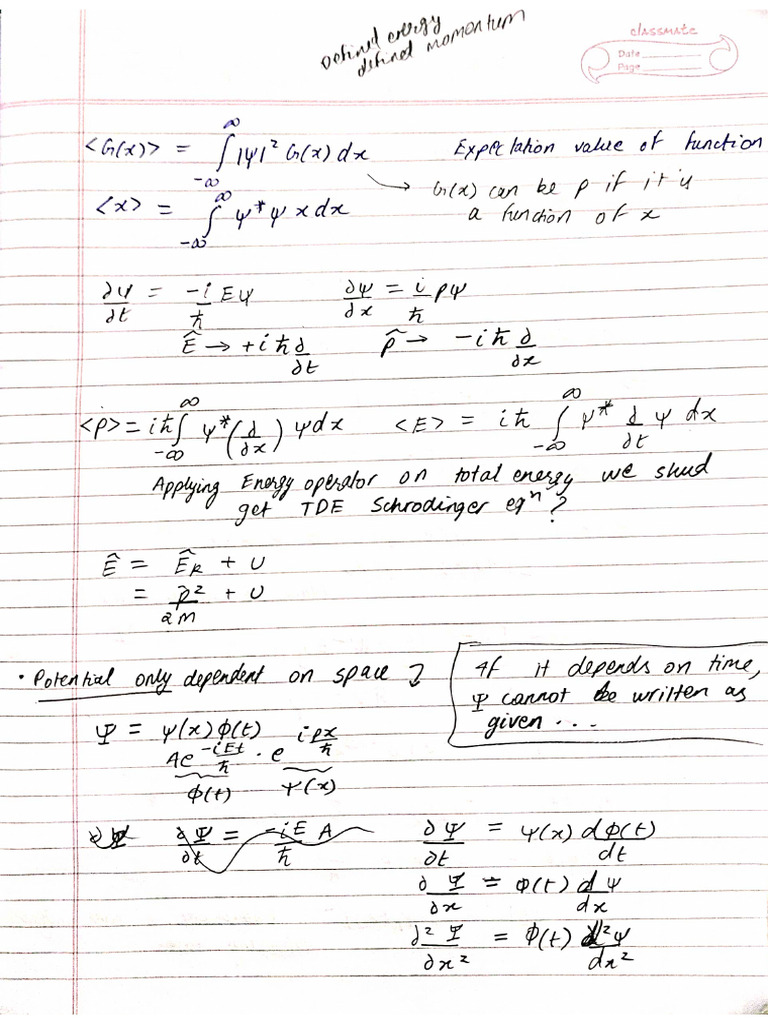 Defined energy
defined momentum
classmate
Date
Page
<G(x)> = ∫_{-∞}^{∞} |Ψ|² G(x) dx    Expectation value of function
→ G(x) can be p if it is
a function of x
<x> = ∫_{-∞}^{∞} Ψ* Ψ x dx
∂Ψ/∂t = -i/ħ EΨ    ∂Ψ/∂x = i/ħ pΨ
Ê → +iħ ∂/∂t    p̂ → -iħ ∂/∂x
<p> = iħ ∫_{-∞}^{∞} Ψ* (∂/∂x) Ψ dx    <E> = iħ ∫_{-∞}^{∞} Ψ* ∂/∂t Ψ dx
Applying Energy operator on total energy we shud
get TDE Schrodinger eqⁿ ?
Ê = Ê_k + U
= p̂²/2m + U
• Potential only dependent on space ↴
If it depends on time,
Ψ cannot be written as
given ...
Ψ = ψ(x) ϕ(t)
Ae^{-iEt/ħ} · e^{ipx/ħ}
ϕ(t)    ψ(x)
∂Ψ/∂t = -iE/ħ A    ∂Ψ/∂t = ψ(x) dϕ(t)/dt
∂Ψ/∂x = ϕ(t) dψ/dx
∂²Ψ/∂x² = ϕ(t) d²ψ/dx²